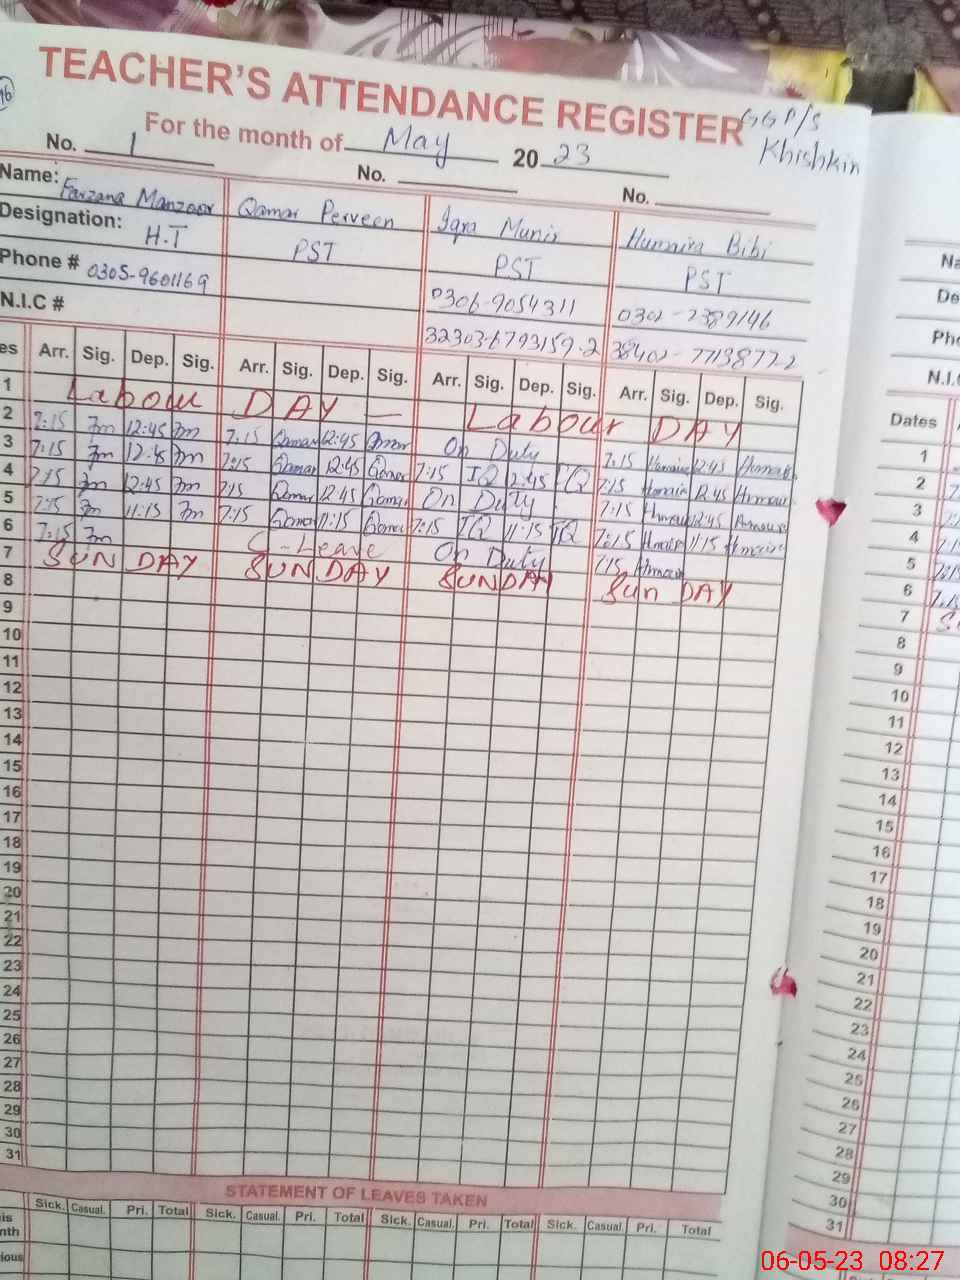 16
TEACHER'S ATTENDANCE REGISTER
GGP/S
Khishkin
For the month of May 2023
No. 1 No. No.
Name: Farzana Manzoor Qamar Perveen Iqra Munir Humaira Bibi
Designation: H.T PST PST PST
Phone # 0305-9601169 0306-9054311 0302-2389146
N.I.C # 32303-6793159-2 38402-7713877-2
es Arr. Sig. Dep. Sig. Arr. Sig. Dep. Sig. Arr. Sig. Dep. Sig. Arr. Sig. Dep. Sig.
1 Labour DAY — Labour DAY
2 7:15 Fm 12:45 Fm 7:15 Qamar 12:45 Qamar On Duty 7:15 Humaira 12:45 Humaira
3 7:15 Fm 12:45 Fm 7:15 Qamar 12:45 Qamar 7:15 IQ 12:45 IQ 7:15 Humaira 12:45 Humaira
4 7:15 Fm 12:45 Fm 7:15 Qamar 12:45 Qamar On Duty 7:15 Humaira 12:45 Humaira
5 7:15 Fm 11:15 Fm 7:15 Qamar 11:15 Qamar 7:15 IQ 11:15 IQ 7:15 Humaira 11:15 Humaira
6 7:15 Fm C-Leave On Duty 7:15 Humaira
7 SUNDAY SUNDAY SUNDAY SunDAY
8
9
10
11
12
13
14
15
16
17
18
19
20
21
22
23
24
25
26
27
28
29
30
31
STATEMENT OF LEAVES TAKEN
Sick. Casual. Pri. Total Sick. Casual. Pri. Total Sick. Casual. Pri. Total Sick. Casual. Pri. Total
is
nth
ious
Na
De
Pho
N.I.C
Dates
1
2
3
4
5
6
7
8
9
10
11
12
13
14
15
16
17
18
19
20
21
22
23
24
25
26
27
28
29
30
31
06-05-23 08:27